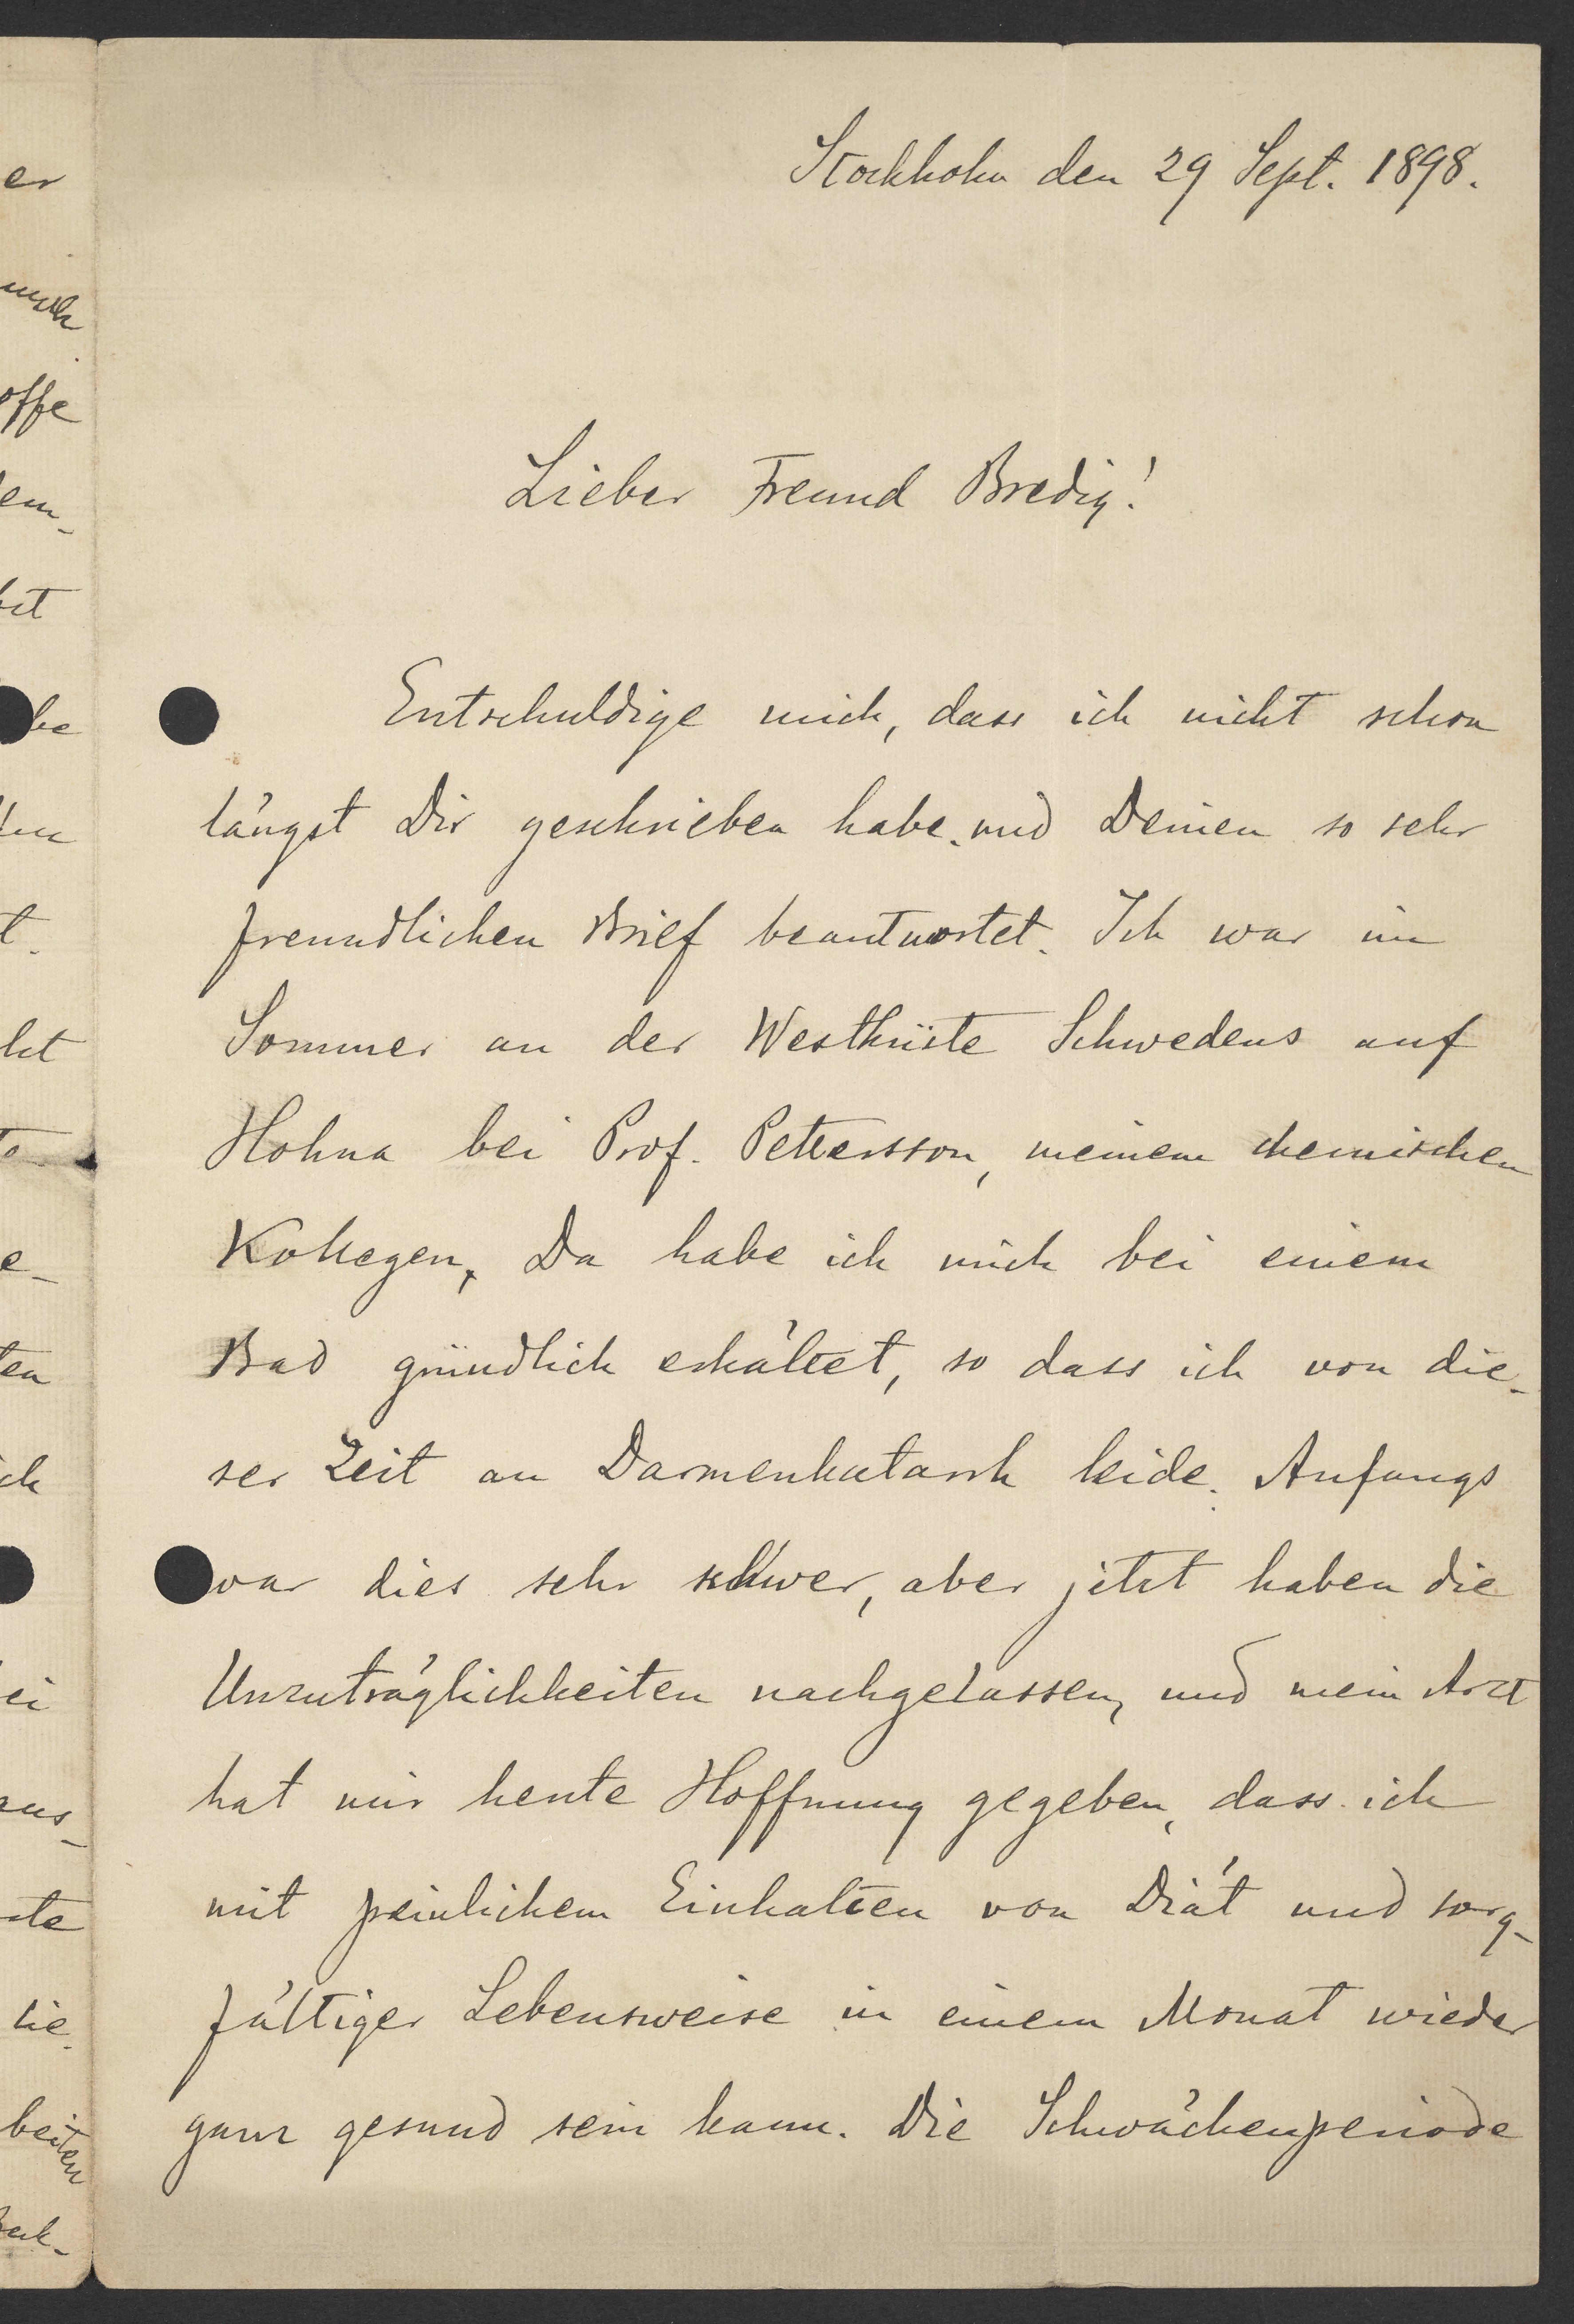 Stockholm den 29 Sept. 1898.
Lieber Freund Bredig!
Entschuldige mich, dass ich nicht schon
längst Dir geschrieben habe und Deinen so sehr
freundlichen Brief beantwortet. Ich war im
Sommer an der Westküste Schwedens auf
Holma bei Prof. Pettersson, meinem chemischen
Kollegen. Da habe ich mich bei einem
Bad gründlich erkältet, so dass ich von die-
ser Zeit an Darmenkatarrh leide. Anfangs
war dies sehr schwer, aber jetzt haben die
Unzuträglichkeiten nachgelassen, und mein Arzt
hat mir heute Hoffnung gegeben, dass ich
mit peinlichem Einhalten von Diät und sorg-
fältiger Lebensweise in einem Monat wieder
ganz gesund sein kann. Die Schwächenperiode